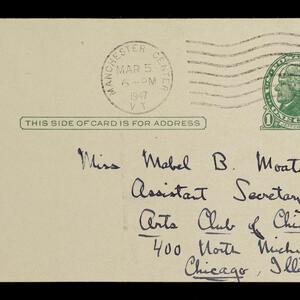 MANCHESTER CENTER
MAR 5
6-PM
1947
VT.
1
THIS SIDE OF CARD IS FOR ADDRESS
Miss Mabel B. Moat
Assistant Secretar
Arts Club of Chi
400 North Mich
Chicago, Illi